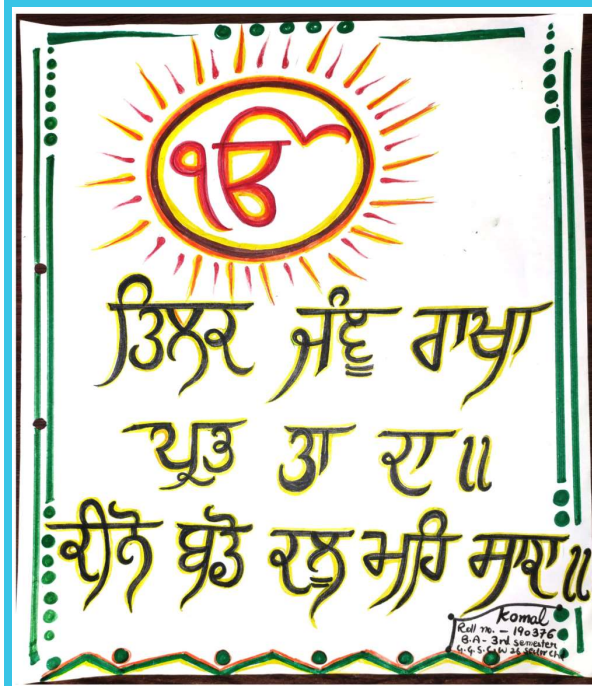 ੴ
ਤਿਲਕ ਜੰਞੂ ਰਾਖਾ
ਪ੍ਰਭ ਤਾ ਕਾ॥
ਕੀਨੋ ਬਡੋ ਕਲੂ ਮਹਿ ਸਾਕਾ॥
Komal
Roll no. - 190376
B.A - 3rd semester
G.G.S.C.W 26 Sector Chd